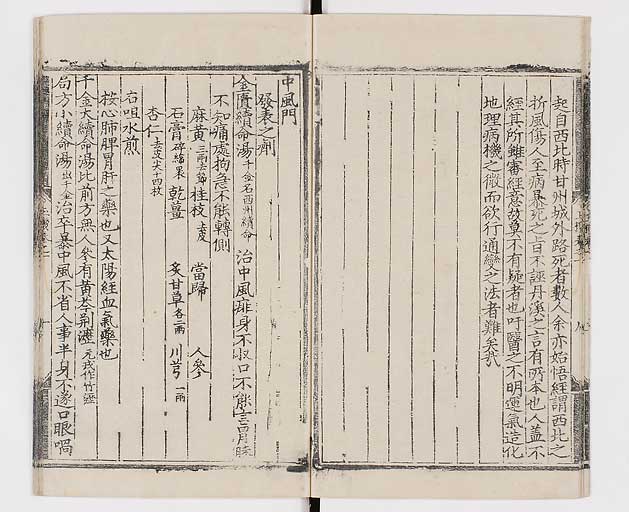 起自西北時甘州城外路死者數人余亦始悟經謂西北之
折風傷人至病暴死之旨不誣丹溪之言有所本也人蓋不
經其所雖審經意故莫不有疑者也吁醫之不明運氣造化
地理病機之微而欲行通變之法者難矣哉
中風門
發表之劑
金匱續命湯 千金名西州續命 治中風痱身不收口不能言冒昧
不知痛處拘急不能轉側
麻黃 三兩去節 桂枝 去皮 當歸 人參
石膏 碎綿裹 乾薑 炙甘草 各一兩 川芎 一兩
杏仁 去皮尖十四枚
右咀水煎
按心肺脾胃肝之藥也又太陽經血氣藥也
千金大續命湯比前方無人參有黃芩荊瀝 元戎作竹瀝
局方小續命湯 出千金 治卒暴中風不省人事半身不遂口眼喎